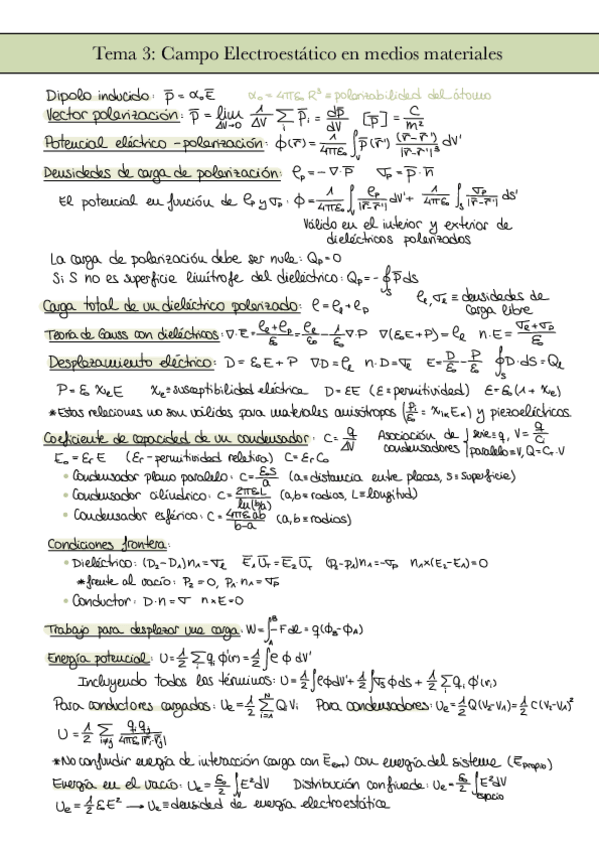 Tema 3: Campo Electroestático en medios materiales
Dipolo inducido: p̄ = α₀Ē   α₀ = 4πε₀R³ ≡ polarizabilidad del átomo
Vector polarización: P̄ = lim_{ΔV→0} 1/ΔV Σ_i p̄_i = dp̄/dV   [P̄] = C/m²
Potencial eléctrico - polarización: ϕ(r̄) = 1/4πε₀ ∫_V p̄(r̄') (r̄-r̄')/|r̄-r̄'|³ dV'
Densidades de carga de polarización: ρ_p = -∇·P̄   σ_p = P̄·n̄
El potencial en función de ρ_p y σ_p: ϕ = 1/4πε₀ ∫_V ρ_p/|r̄-r̄'| dV' + 1/4πε₀ ∫_S σ_p/|r̄-r̄'| ds'
Válido en el interior y exterior de
dieléctricos polarizados
La carga de polarización debe ser nula: Q_p = 0
Si S no es superficie limítrofe del dieléctrico: Q_p = -∮_S P̄ds
Carga total de un dieléctrico polarizado: ρ = ρ_ℓ + ρ_p   ρ_ℓ, σ_ℓ ≡ densidades de carga libre
Teoría de Gauss con dieléctricos: ∇·Ē = (ρ_ℓ+ρ_p)/ε₀ = ρ_ℓ/ε₀ - 1/ε₀ ∇·P   ∇(ε₀E+P) = ρ_ℓ   n·E = (σ_ℓ+σ_p)/ε₀
Desplazamiento eléctrico: D = ε₀E + P   ∇D = ρ_ℓ   n·D = σ_ℓ   E = D/ε₀ - P/ε₀   ∮_S D·ds = Q_ℓ
P = ε₀ χ_e E   χ_e ≡ susceptibilidad eléctrica   D = εE (ε ≡ permitividad)   ε = ε₀(1 + χ_e)
*Estas relaciones no son válidas para materiales anisótropos (P_i/ε₀ = χ_ik E_k) y piezoeléctricos.
Coeficiente de capacidad de un condensador: C = q/ΔV   Asociación de condensadores { serie = q, V = q/C   paralelo = V, Q = C_T·V
E₀ = ε_r E (ε_r - permitividad relativa) C = ε_r C₀
• Condensador plano paralelo: C = ε₀S/a (a = distancia entre placas, S = superficie)
• Condensador cilíndrico: C = 2πε₀L/ln(b/a) (a,b = radios, L = longitud)
• Condensador esférico: C = 4πε₀ab/b-a (a,b = radios)
Condiciones frontera:
• Dieléctrico: (D₂-D₁)n₁ = σ_ℓ   Ē₁ū_T = Ē₂ū_T   (P₂-P₁)n₁ = -σ_p   n₁×(E₂-E₁) = 0
*frente al vacío: P₂ = 0, P₁·n₁ = σ_p
• Conductor: D·n = σ   n×E = 0
Trabajo para desplazar una carga: W = ∫_A^B -Fdl = q(ϕ_B - ϕ_A)
Energía potencial: U = 1/2 Σ_i q_i ϕ'(r_i) = 1/2 ∫ρ ϕ dV'
Incluyendo todos los términos: U = 1/2 ∫ρϕdV' + 1/2 ∫σ_S ϕ ds + 1/2 Σ_i q_i ϕ'(r_i)
Para conductores cargados: U_e = 1/2 Σ_{i=1}^N Q_i V_i   Para condensadores: U_e = 1/2 Q(V₂-V₁) = 1/2 C(V₂-V₁)²
U = 1/2 Σ_{i≠j} q_i q_j/4πε₀|r̄_i-r̄_j|
*No confundir energía de interacción (carga con Ē_ext) con energía del sistema (Ē_propio)
Energía en el vacío: U_e = ε₀/2 ∫_V E²dV   Distribución confinada: U_e = ε₀/2 ∫_espacio E²dV
u_e = 1/2 εE² → u_e ≡ densidad de energía electroestática